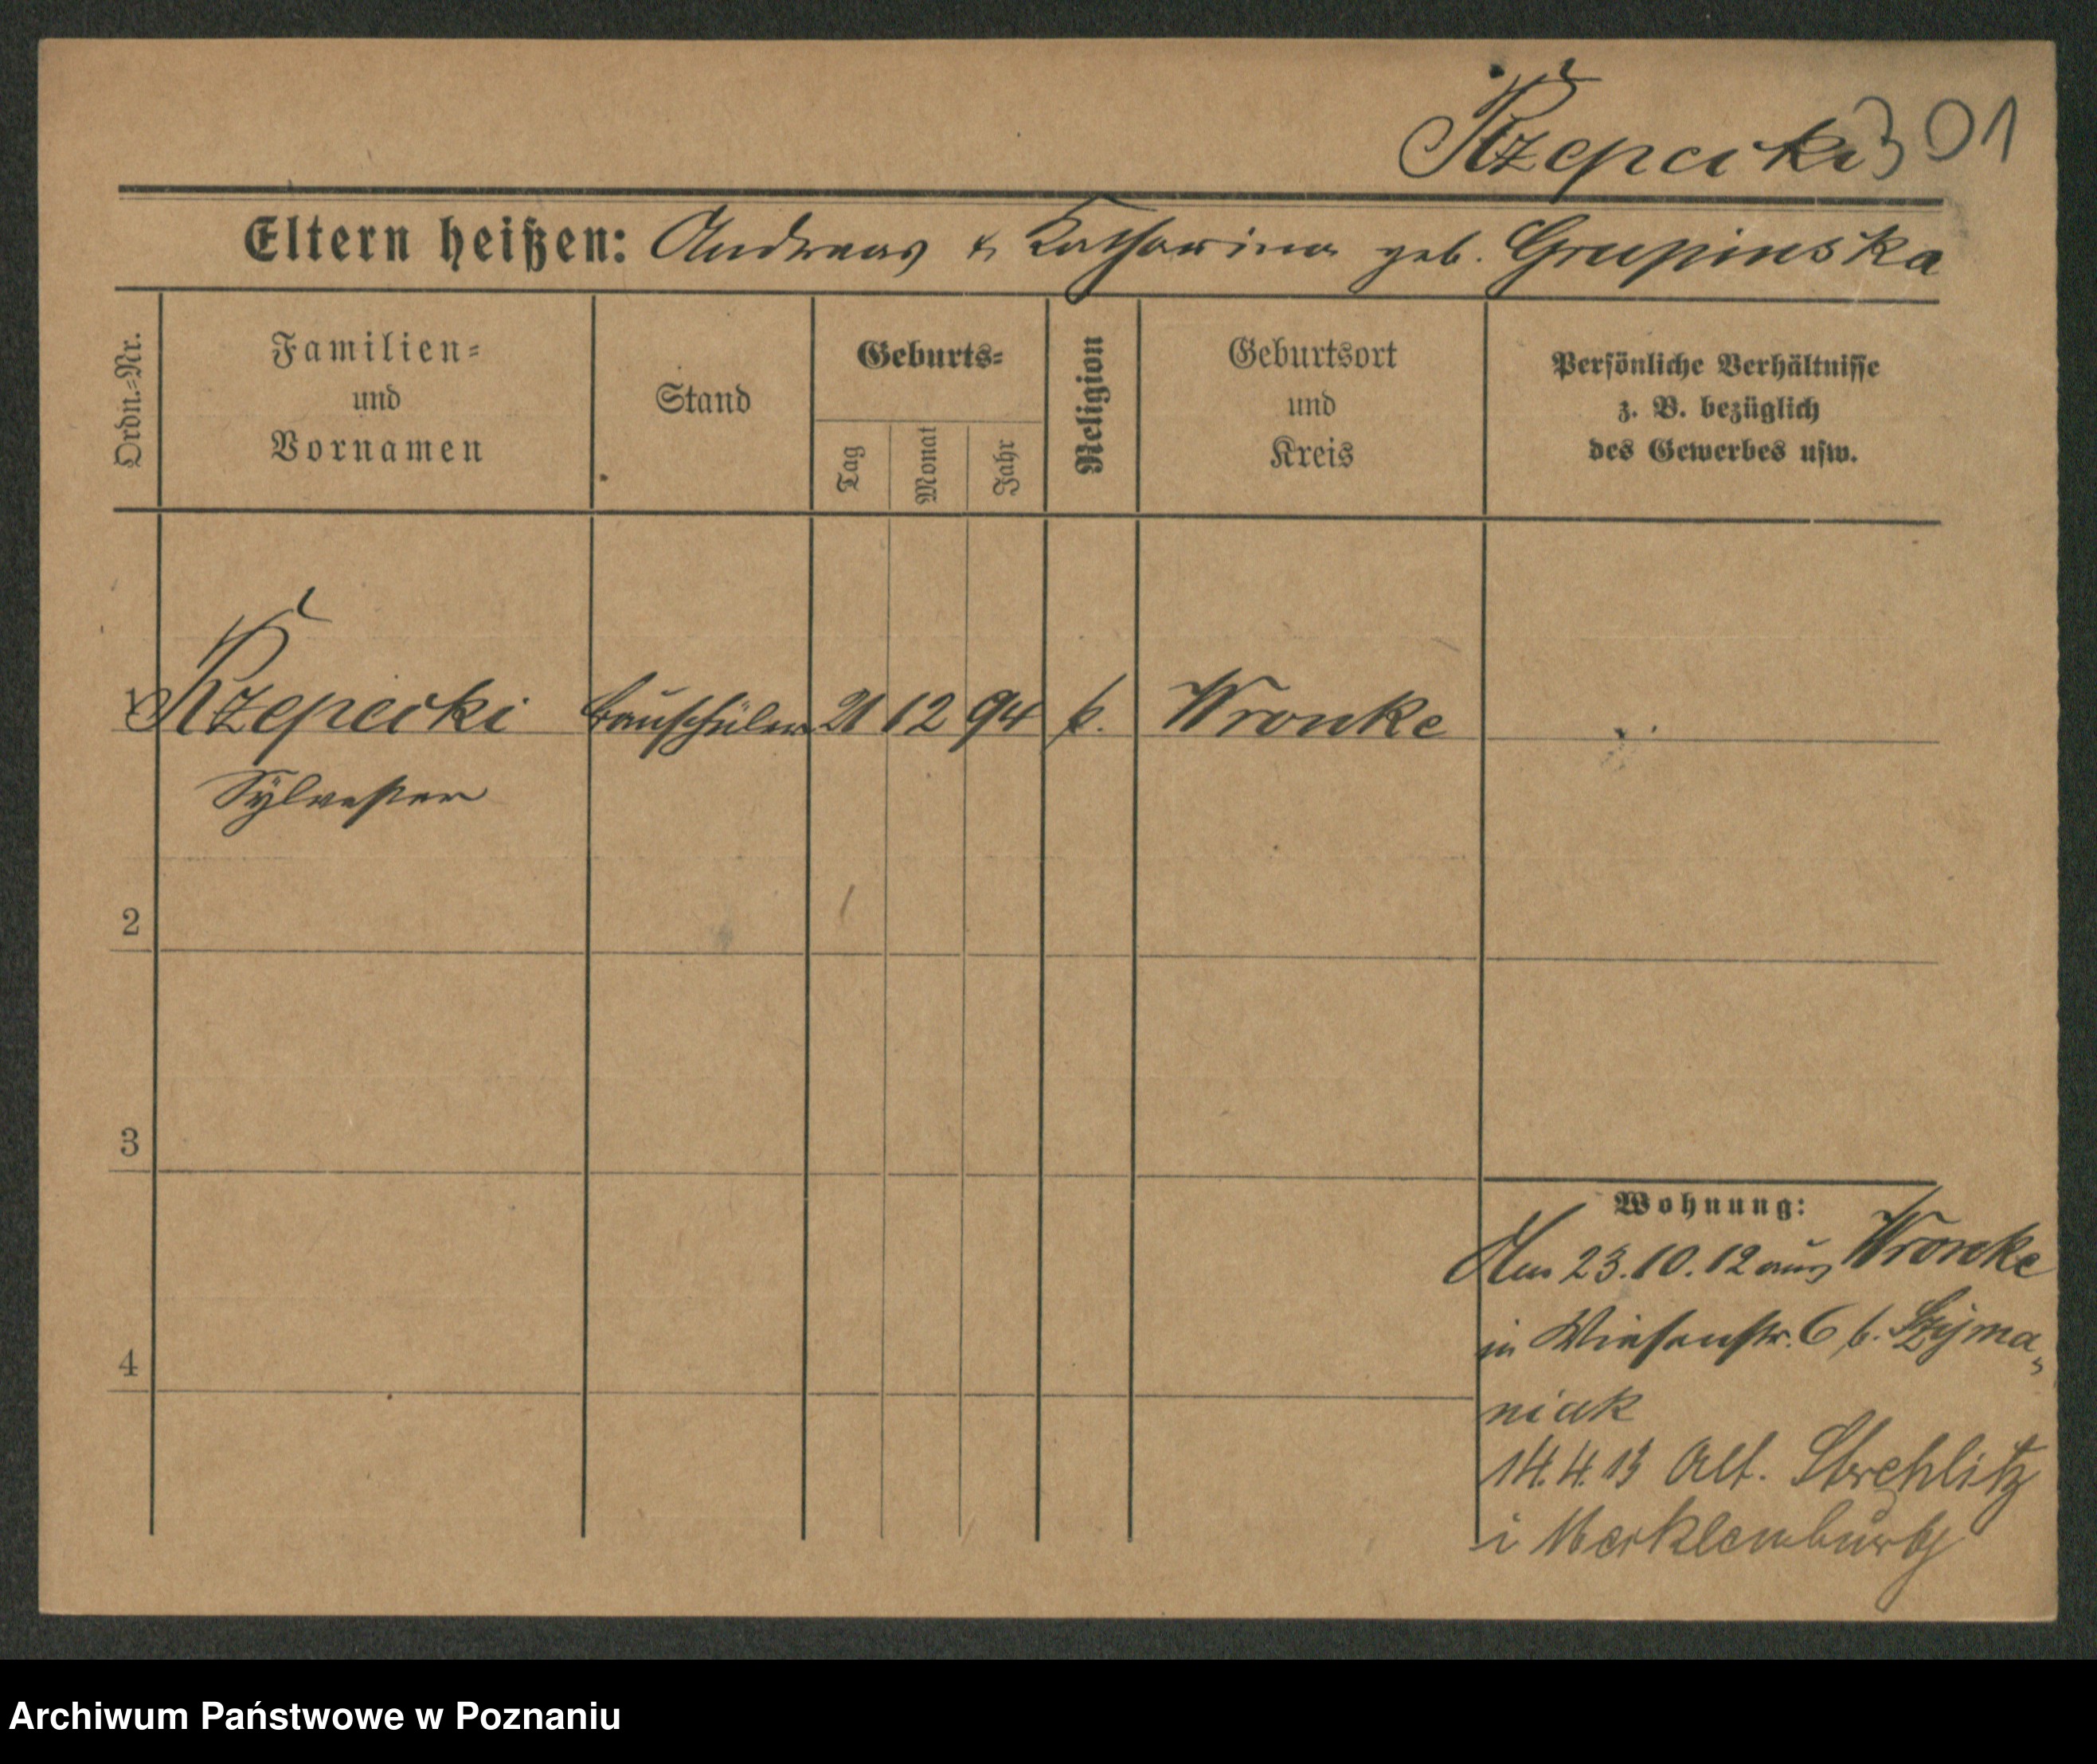 Rzepecki 301
Eltern heißen: Andreas & Katharina geb. Grupinska
Ordn.=Nr.
Familien=
und
Vornamen
Stand
Geburts=
Tag
Monat
Jahr
Religion
Geburtsort
und
Kreis
Persönliche Verhältnisse
z. B. bezüglich
des Gewerbes usw.
1 Rzepecki Bauschüler 21 12 94 k. Wronke
Sylvester
2
3
4
Wohnung:
Am 23.10.12 aus Wronke
in Wiesenstr. 6 b. Szyma=
niak
14.4.13 Alt. Strehlitz
i Mecklemburg
Archiwum Państwowe w Poznaniu